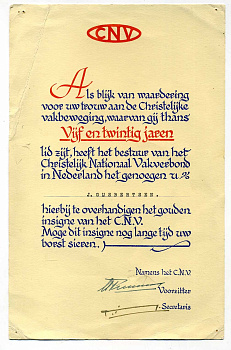 CNV
Als blijk van waardering
voor uw trouw aan de Christelijke
vakbeweging, waarvan gij thans
Vijf en twintig jaren
lid zijt, heeft het bestuur van het
Christelijk Nationaal Vakverbond
in Nederland het genoegen u
hierbij te overhandigen het gouden
insigne van het C.N.V.
Moge dit insigne nog lange tijd uw
borst sieren.
Namens het C.N.V.
Voorzitter
Secretaris